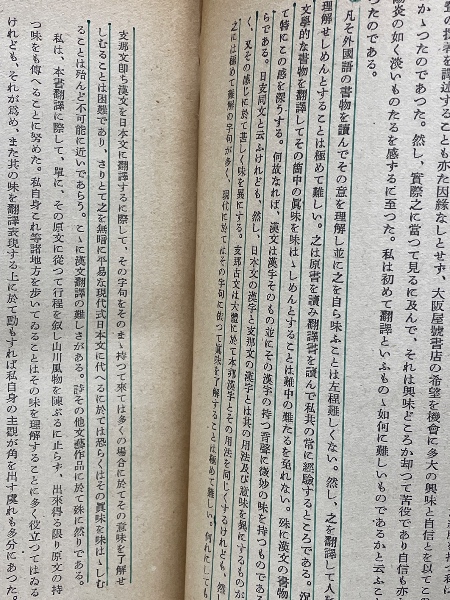 の撰者を譯述することも亦た因縁なしとせず、大阪屋號書店の希望を機會に多大の興味と自信とを以てこ
かゝつたのであつた。然し、實際之に當つて見るに及んで、それは興味どころか却つて苦役であり自信も亦
陽炎の如く淡いものたるを感ずるに至つた。私は初めて翻譯といふものゝ如何に難しいものであるかと云ふこ
つたのである。
凡そ外國語の書物を讀んでその意を理解し並に之を自ら味ふことは左程難しくない。然し、之を翻譯して人を
理解せしめんとすることは極めて難しい。之は原書を讀み翻譯書を讀んで私共の常に經驗するところである。況
文學的な書物を翻譯してその箇中の眞味を味はゝしめんとすることは難中の難たるを免れない。殊に漢文の書物
て特にこの感を深うする。何故なれば、漢文は漢字そのもの並にその漢字の持つ音聲に微妙の味を持つものであ
らである。日支同文と云ふけれども、然し、日本文の漢字と支那文の漢字とは其の用法及び意味を異にするものが
く、又その感じに於て著しく味を異にする。支那古文は大體に於て本邦漢字とその用法を同じくするけれども、然し
之には極めて難解の字句が多く、現代に於てはその字句に依つて眞味を了解することは極めて難しい。何れにしても
支那文即ち漢文を日本文に翻譯するに際して、その字句をそのまゝ持つて來ては多くの場合に於てその意味を了解せ
しむることは困難であり、さりとて之を無暗に平易な現代式日本文に代へるに於ては恐らくはその眞味を味はゝしむ
ることは殆んど不可能に近いであらう。こゝに漢文翻譯の難しさがある。詩その他文藝作品に於て殊に然りである。
私は、本書翻譯に際して、單に、その原文に從つて行程を敍し山川風物を陳ぶるに止らず、出來得る限り原文の持
つ味をも傳へることに努めた。私自身これ等諸地方を歩いてゐることはその味を理解することに多く役立つてはゐる
けれども、それが爲め、また其の味を翻譯表現する上に於て動もすれば私自身の主觀が角を出す虞れも多分にあつた。